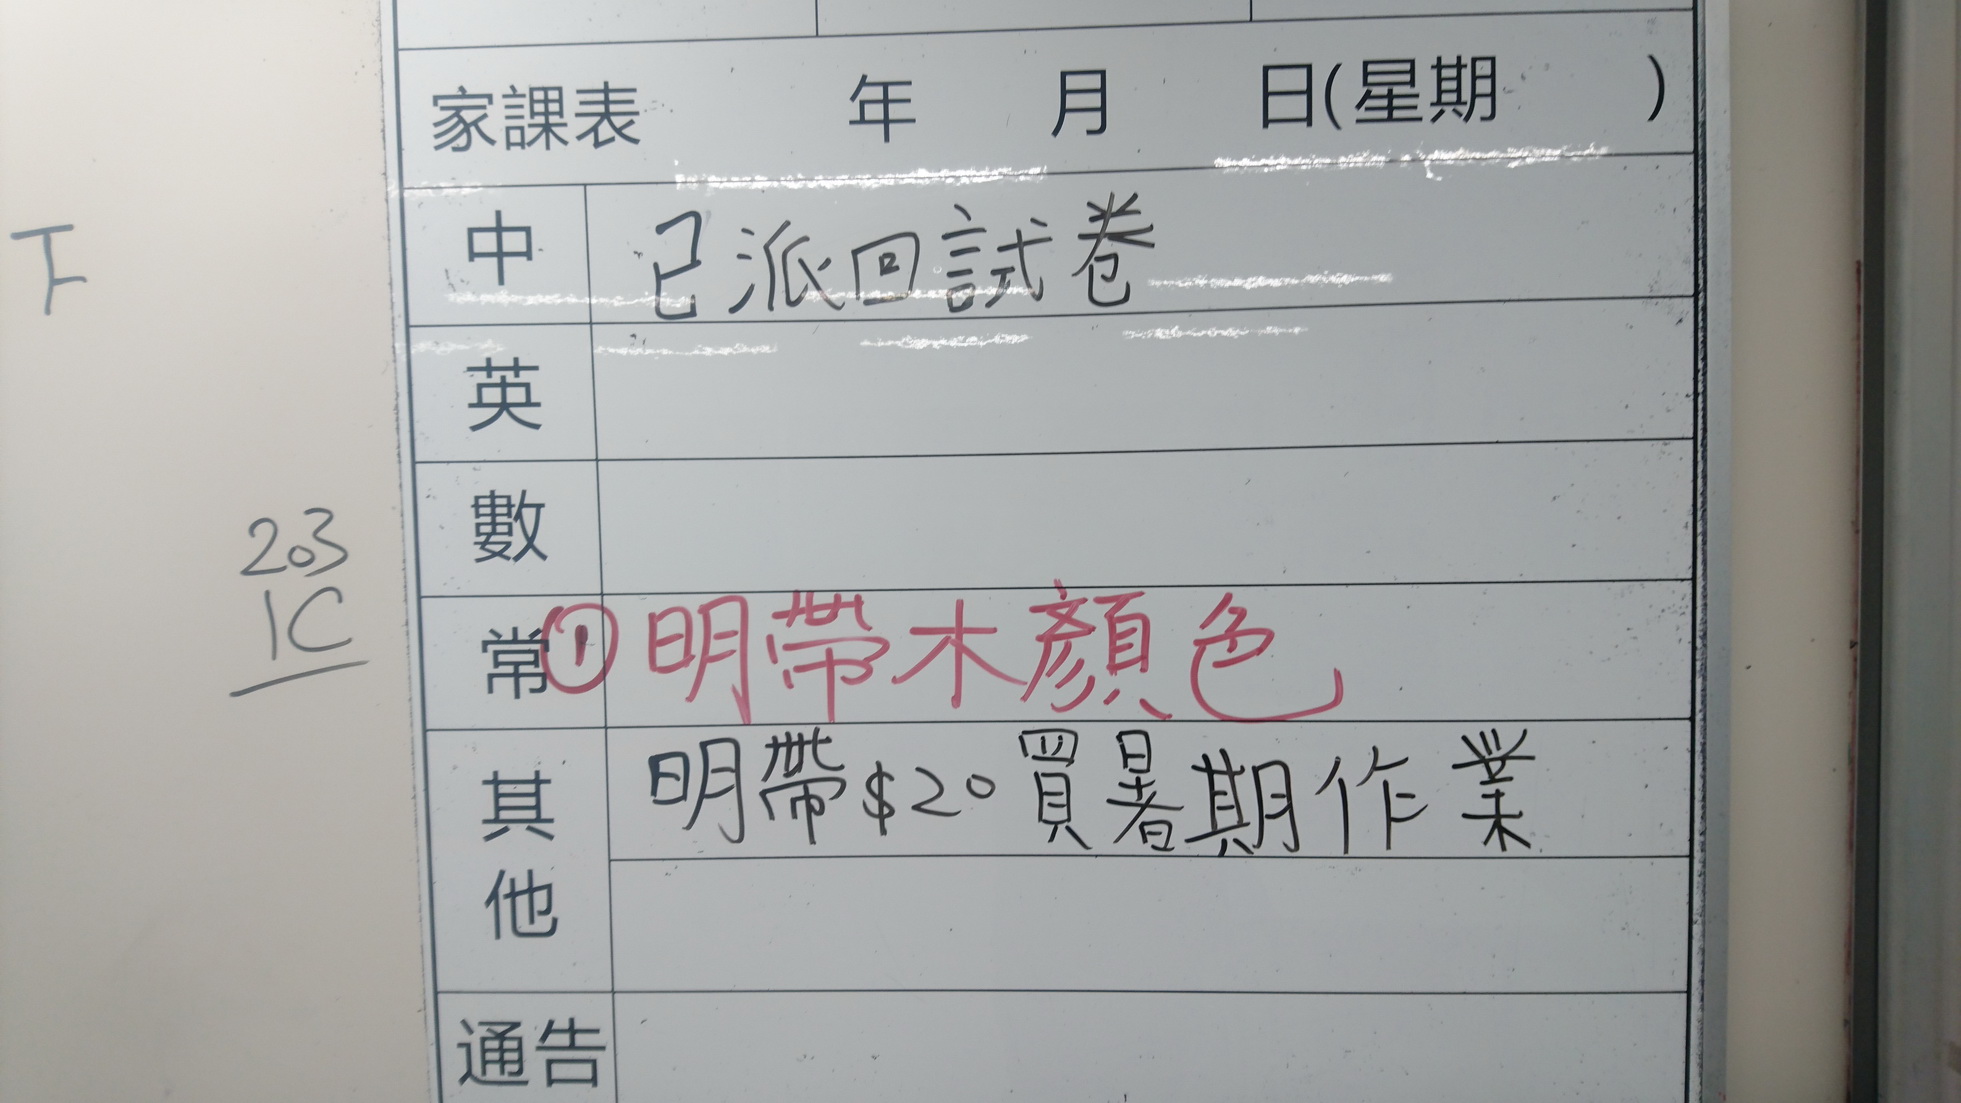 家課表 年 月 日(星期 )
中 已派回試卷
英
數
常 ① 明帶木顏色
其他 明帶$20買暑期作業
通告
下
203
1C